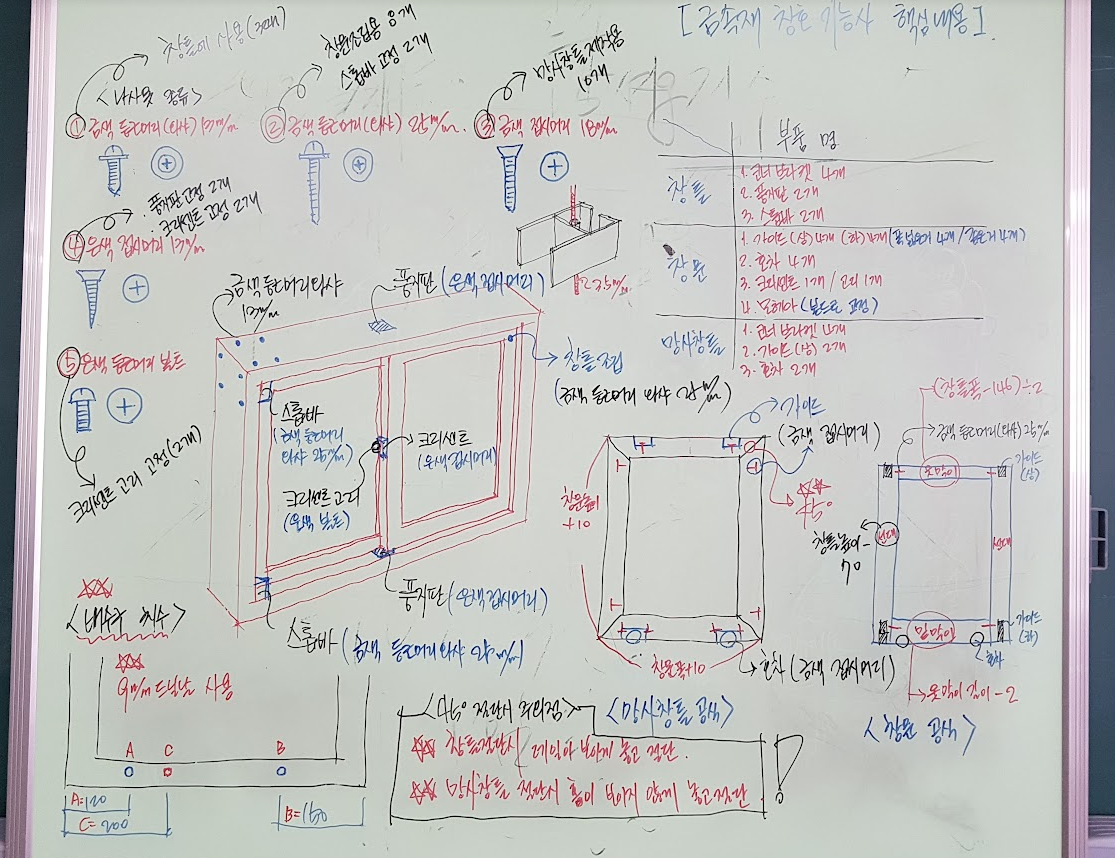 [금속재 창호 기능사 핵심내용]
창틀에 사용(3대)
<나사못 종류>
① 금색 둥근머리(와샤) 13m/m
창문조립용 8개
스톱바 고정 2개
② 금색 둥근머리(와샤) 25m/m.
망사창틀제작용
10개
③ 금색 접시머리 18m/m
· 풍지판고정 2개
· 크리센트 고정 2개
④ 은색 접시머리 13m/m
⑤ 은색 둥근머리 볼트
크리센트 고리 고정(2개)
부품 명
창틀
1. 코너 브라켓 4개
2. 풍지판 2개
3. 스톱바 2개
창문
1. 가이드(상) 4개 (하) 4개 (폭 넓은거 4개 / 좁은거 4개)
2. 호차 4개
3. 크리센트 1개 / 고리 1개
4. 모헤아 (본드로 고정)
망사창틀
1. 코너 브라켓 4개
2. 가이드(상) 2개
3. 호차 2개
23.5m/m
금색 둥근머리와샤
13m/m
풍지판 (은색접시머리)
창틀조립
(금색 둥근머리 와샤 25m/m)
스톱바
(금색 둥근머리
와샤 25m/m)
크리센트
(은색 접시머리)
크리센트고리
(은색 볼트)
풍지판 (은색 접시머리)
스톱바 (금색 둥근머리와샤 25m/m)
가이드
(금색 접시머리)
45°
창문높이
+10
창문폭+10
호차 (금색 접시머리)
(창틀폭-146)÷2
금색 둥근머리(와샤) 25m/m
가이드
(상)
윗막이
창틀높이-
70
선대
선대
밑막이
가이드
(하)
호차
윗막이 길이-2
<창문 공식>
<배수구 치수>
9m/m 드릴날 사용
A C B
A=120
C=200
B=150
<45° 절단시 주의점>
<망사창틀 공식>
창틀절단시 레일이 보이게 놓고 절단.
망사창틀 절단시 홈이 보이지 않게 놓고 절단
!